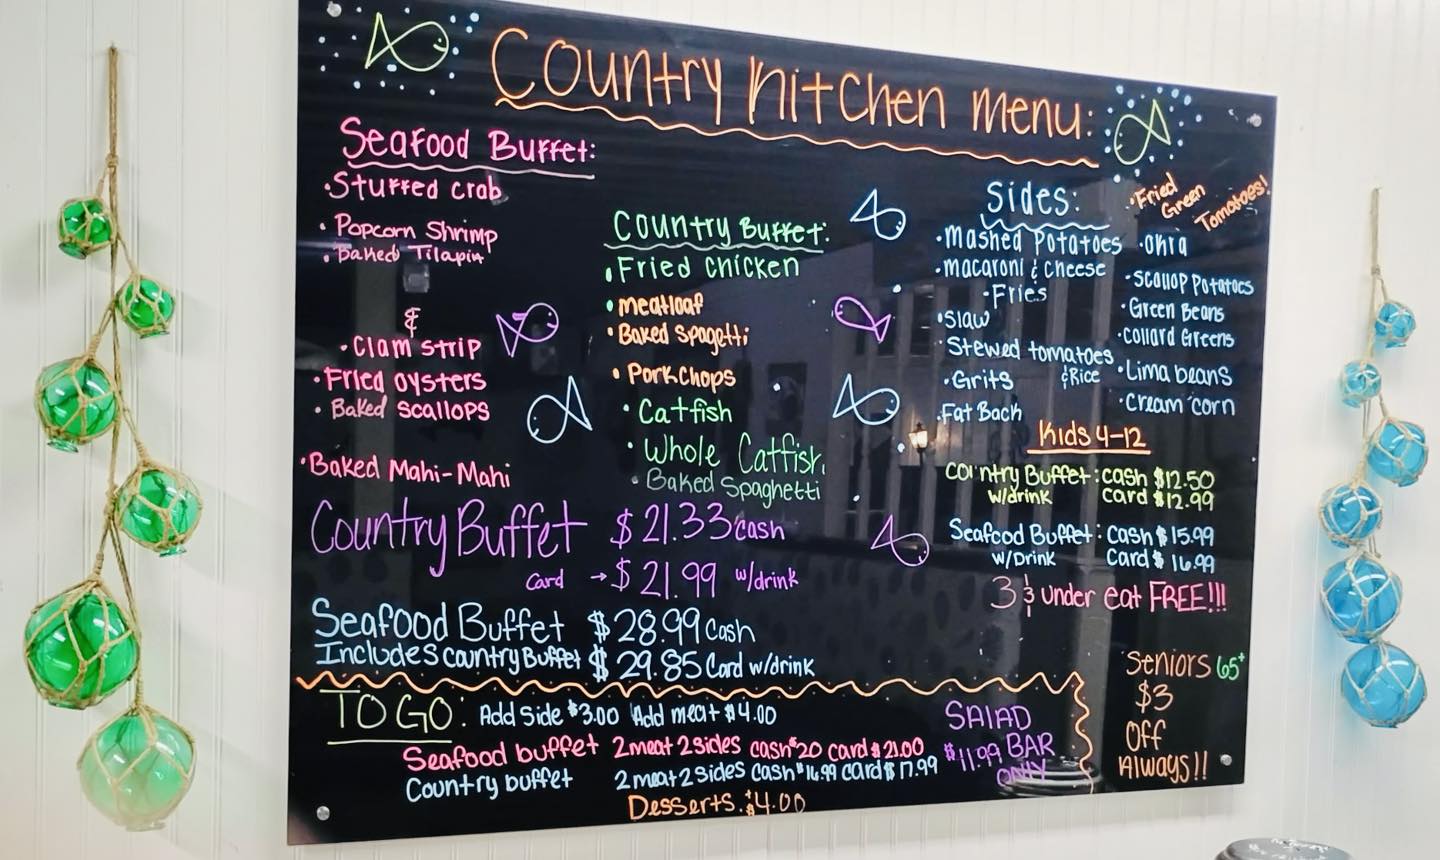 Country Kitchen Menu:
Seafood Buffet:
• Stuffed crab
• Popcorn Shrimp
• Baked Tilapia
&
• Clam strip
• Fried oysters
• Baked scallops
• Baked Mahi-Mahi
Country Buffet:
• Fried Chicken
• Meatloaf
• Baked Spagetti
• Porkchops
• Catfish
• Whole Catfish
• Baked Spaghetti
Sides:
• Mashed Potatoes
• Macaroni & Cheese
• Fries
• Slaw
Stewed tomatoes
& Rice
• Grits
• Fat Back
• Fried
Green
Tomatoes!
• Okra
• Scallop Potatoes
• Green Beans
• Collard Greens
• Lima beans
• Cream corn
Kids 4-12
Country Buffet: cash $12.50
w/drink card $12.99
Seafood Buffet: Cash $15.99
w/Drink Card $16.99
3 & under eat FREE!!!
Country Buffet $21.33 cash
Card → $21.99 w/drink
Seafood Buffet $28.99 Cash
Includes country Buffet $29.85 Card w/drink
TO GO: Add Side $3.00 Add meat $4.00
Seafood buffet 2 meat 2 sides cash $20 card $21.00
Country buffet 2 meat 2 sides cash $16.99 card $17.99
Desserts: $4.00
SALAD
$11.99 BAR
ONLY
Seniors 65+
$3
Off
Always!!